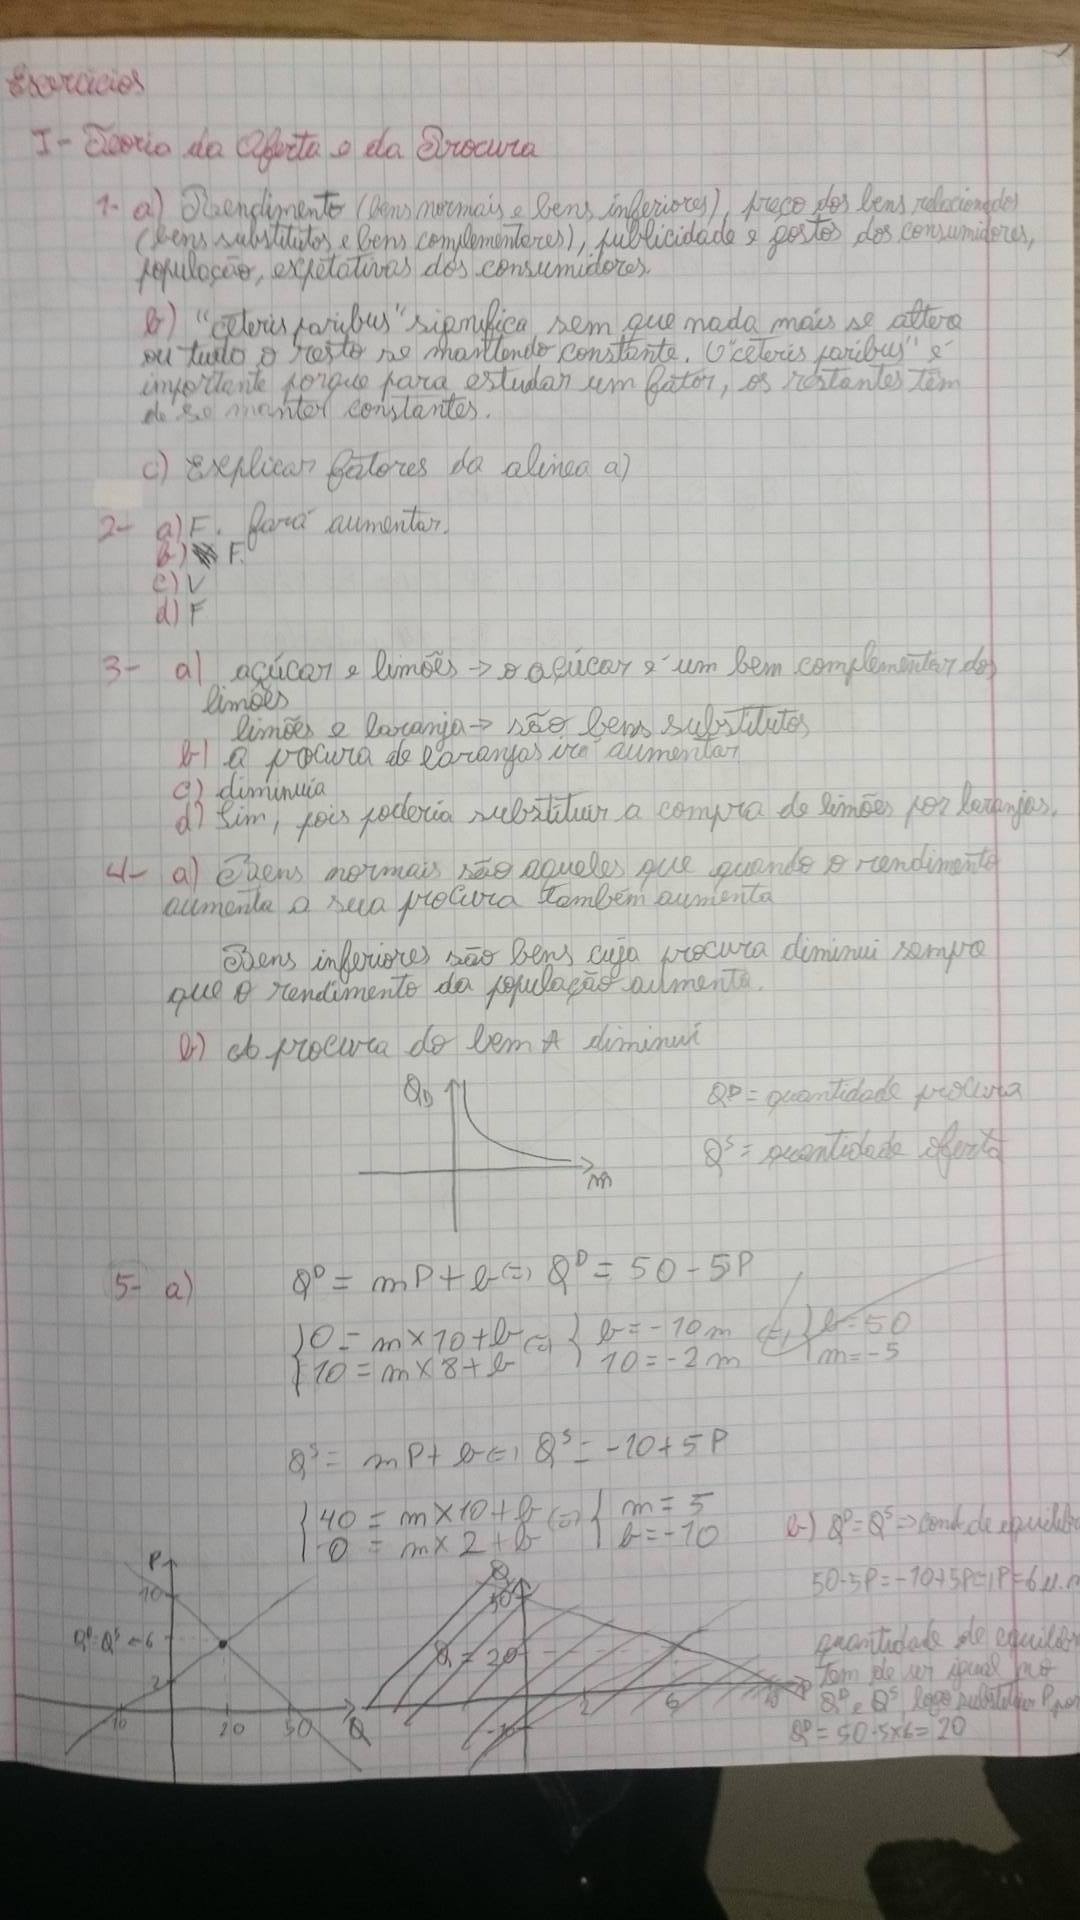 Exercícios
I- Teoria da Oferta e da Procura
1- a) Rendimento (bens normais e bens inferiores), preço dos bens relacionados
(bens substitutos e bens complementares), publicidade e gostos dos consumidores,
população, expetativas dos consumidores.
b) "ceteris paribus" significa sem que nada mais se altere
ou tudo o resto se mantendo constante. O "ceteris paribus" é
importante porque para estudar um fator, os restantes têm
de se manter constantes.
c) Explicar fatores da alínea a)
2- a) F. fará aumentar.
b) F.
c) V
d) F
3- a) açúcar e limões → o açúcar é um bem complementar dos
limões
limões e laranja → são bens substitutos
b) a procura de laranjas irá aumentar
c) diminuia
d) Sim, pois poderia substituir a compra de limões por laranjas.
4- a) Bens normais são aqueles que quando o rendimento
aumenta a sua procura também aumenta
Bens inferiores são bens cuja procura diminui sempre
que o rendimento da população aumenta.
b) A procura do bem A diminui
Q_D
Qᴰ = quantidade procura
Qˢ = quantidade oferta
m
5- a) Qᴰ = mP + b (=) Qᴰ = 50 - 5P
{0 = m × 10 + b (=) {b = -10m (=) {b = 50
{10 = m × 8 + b {10 = -2m {m = -5
Qˢ = mP + b (=) Qˢ = -10 + 5P
{40 = m × 10 + b (=) {m = 5
{0 = m × 2 + b {b = -10
b) Qᴰ = Qˢ => cond. de equilíb
50 - 5P = -10 + 5P (=) P = 6 u.m
quantidade de equilíbr
tem de ser igual no
Qᴰ e Qˢ, logo substituir P por
Qᴰ = 50 - 5×6 = 20
P
10
Qᴰ=Qˢ = 6
2
-10 20 50 Q
Q
50
Q = 20
2 6 10 P
-10